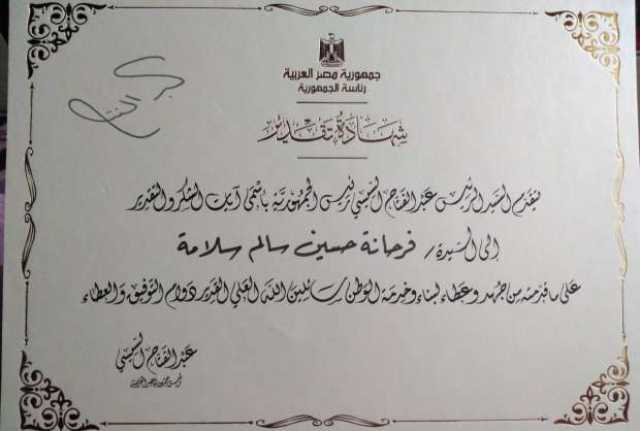 جمهورية مصر العربية
رئاسة الجمهورية
شهادة تقدير
يتقدم السيد الرئيس عبد الفتاح السيسي رئيس الجمهورية بأسمى آيات الشكر والتقدير
إلى السيدة / فرحانة حسين سالم سلامة
على ما قدمته من جهد وعطاء لبناء وخدمة الوطن سائلين الله العلي القدير دوام التوفيق والعطاء
عبد الفتاح السيسي